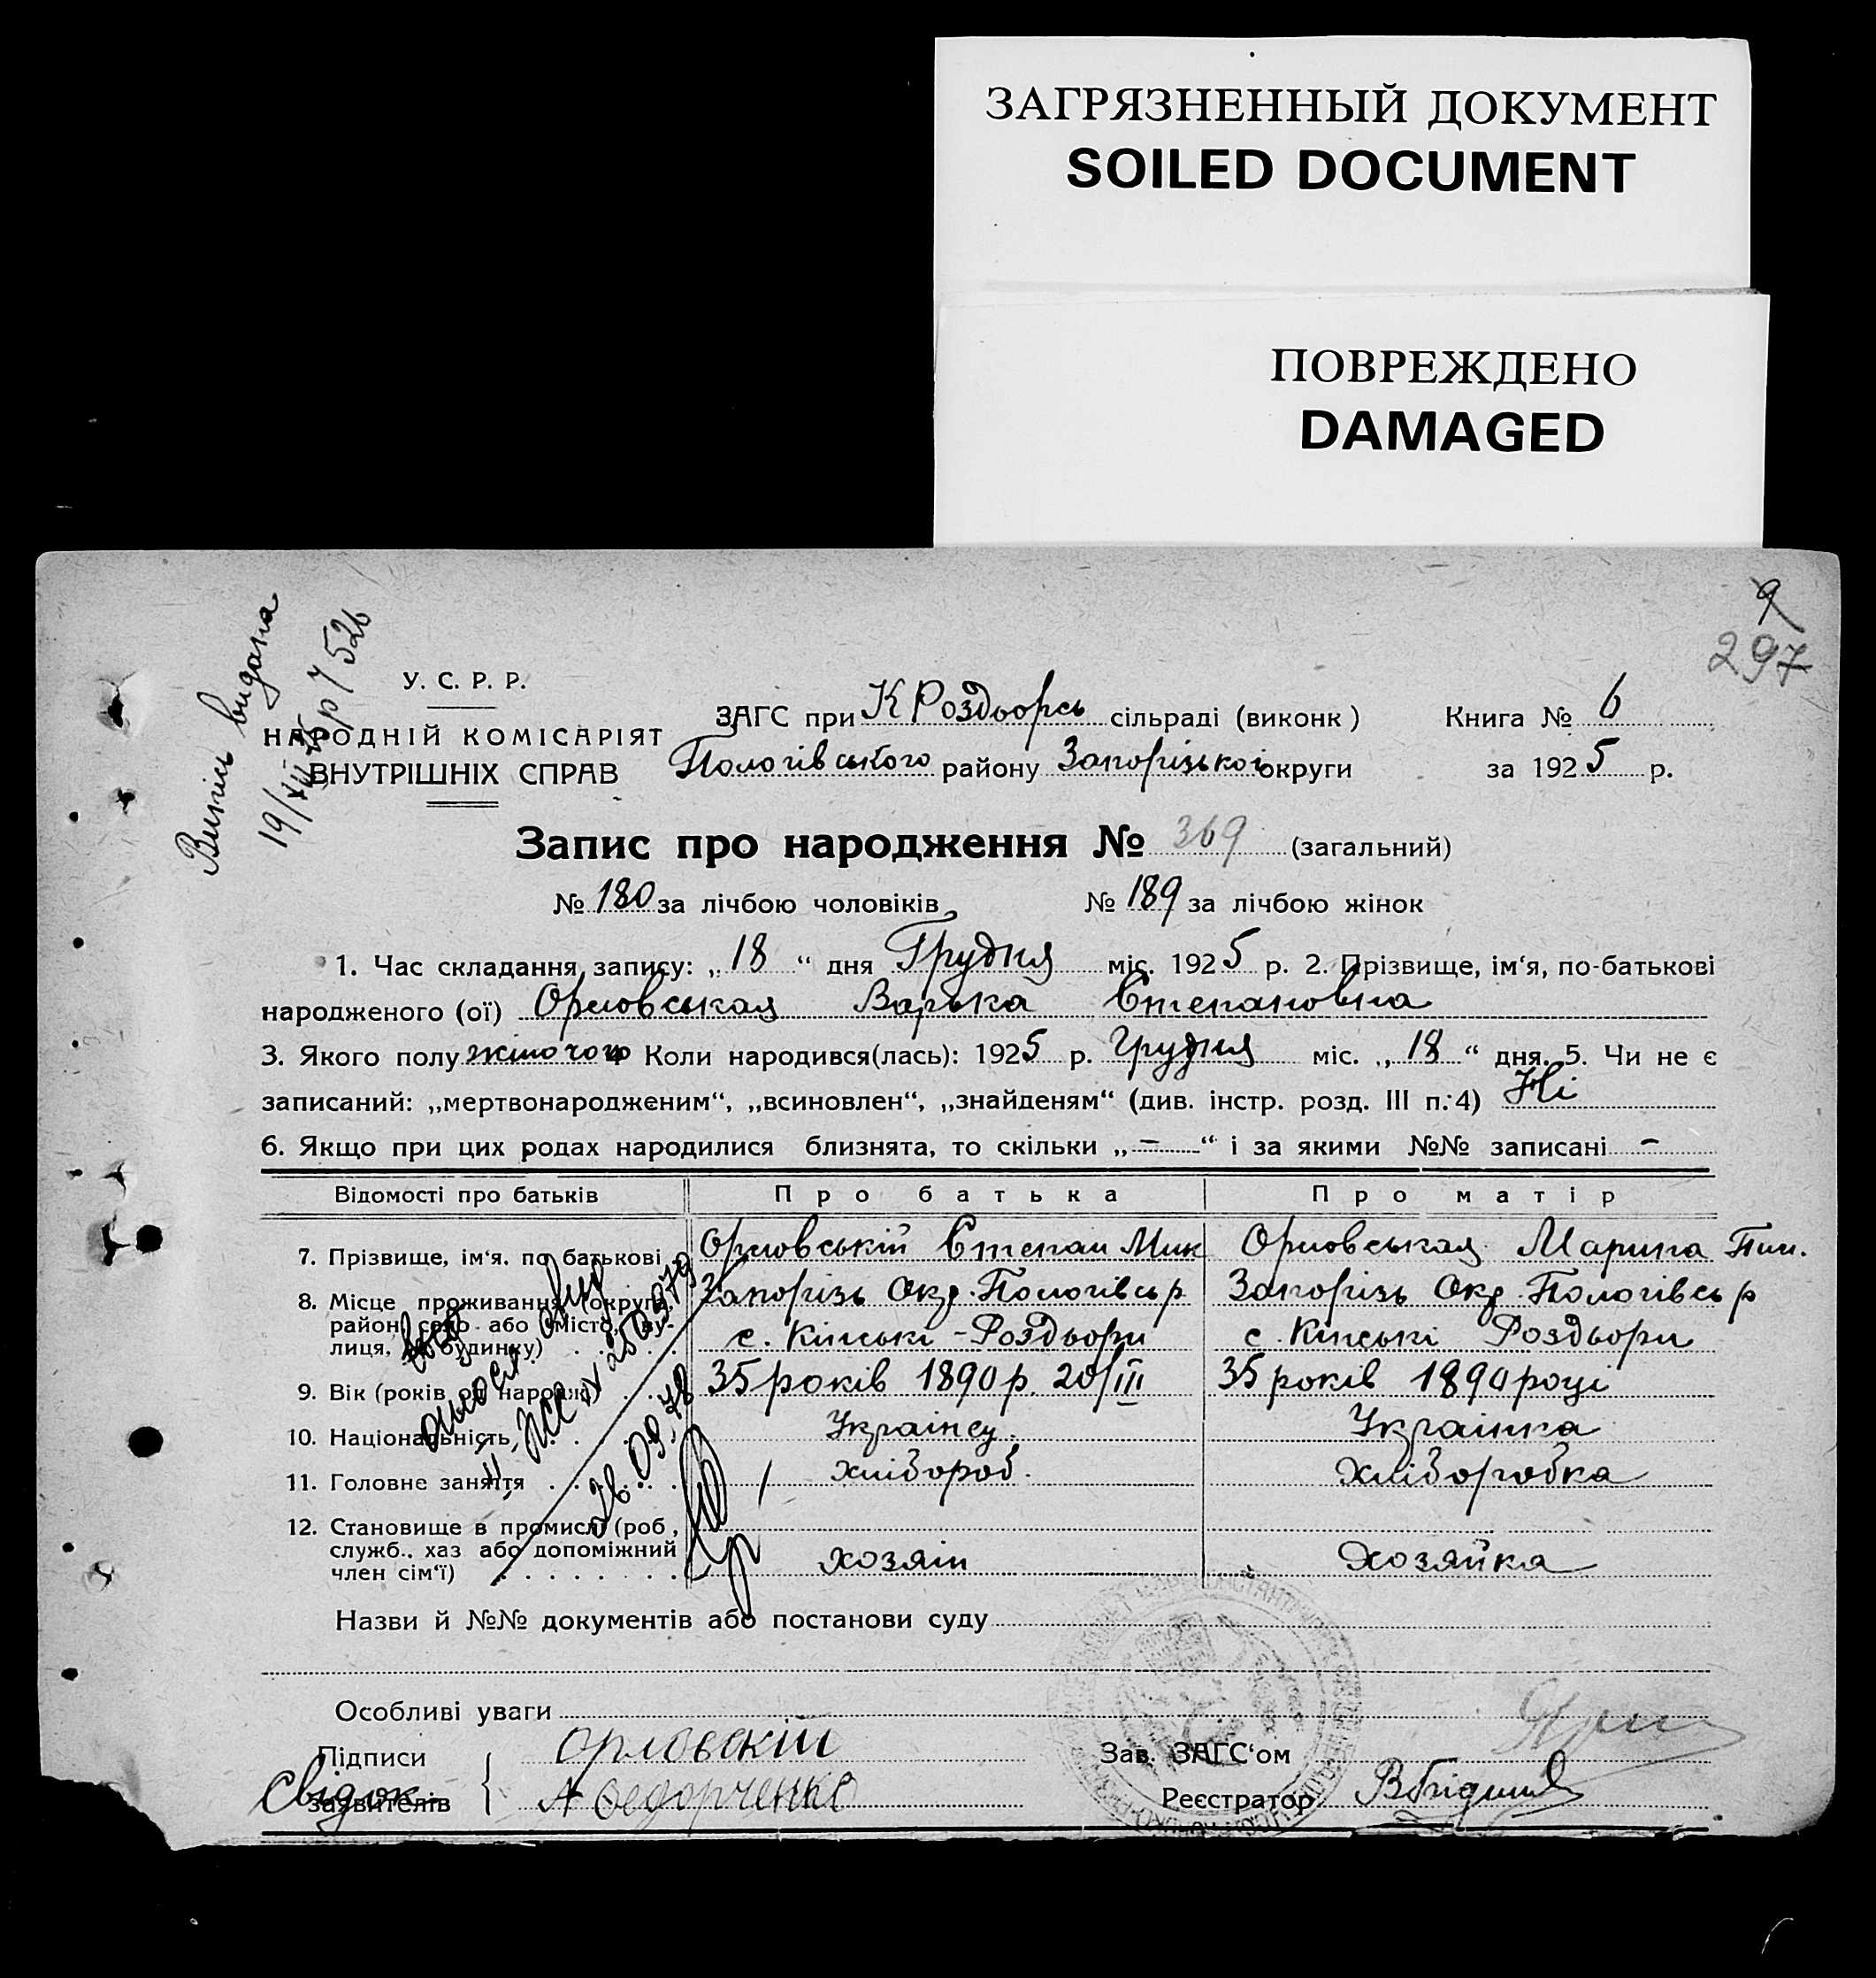 ЗАГРЯЗНЕННЫЙ ДОКУМЕНТ
SOILED DOCUMENT
ПОВРЕЖДЕНО
DAMAGED
9
297
Випись видана
19/XII 25 р
У. С. Р. Р.
НАРОДНІЙ КОМІСАРІЯТ
ВНУТРІШНІХ СПРАВ
ЗАГС при К Роздьорсь сільраді (виконк) Книга № 6
Пологівського району Запорізької округи за 1925 р.
Запис про народження № 369 (загальний)
№ 180 за лічбою чоловіків № 189 за лічбою жінок
1. Час складання запису: „18“ дня Грудня міс. 1925 р. 2. Прізвище, ім‘я, по-батькові
народженого (ої) Орловськая Варька Степановна
3. Якого полу жіночого 4 Коли народився(лась): 1925 р. Грудня міс. „18“ дня. 5. Чи не є
записаний: „мертвонародженим“, „всиновлен“, „знайденям“ (див. інстр. розд. III п. 4) Ні
6. Якщо при цих родах народилися близнята, то скільки „—“ і за якими №№ записані —
Відомості про батьків Про батька Про матір
7. Прізвище, ім‘я, по батькові Орловській Степан Мик Орловськая Марина Пил.
8. Місце проживання (округа, Запорізь Окр. Пологівсь р Запорізь Окр. Пологівсь р
район, село або місто, ву-
лиця, № будинку) с. Кінські-Роздьори с. Кінські Роздьори
9. Вік (років од народж.) 35 років 1890 р. 20/III 35 років 1890 році
10. Національність Українец. Українка
11. Головне заняття хлібороб. Хліборобка
12. Становище в промислі (роб,
служб., хаз або допоміжний
член сім‘ї) хозяїн Хозяйка
26.09.78
Назви й №№ документів або постанови суду
Особливі уваги
Підписи Орловскій Зав. ЗАГС‘ом
заявителів Свідок А Федорченко Реєстратор